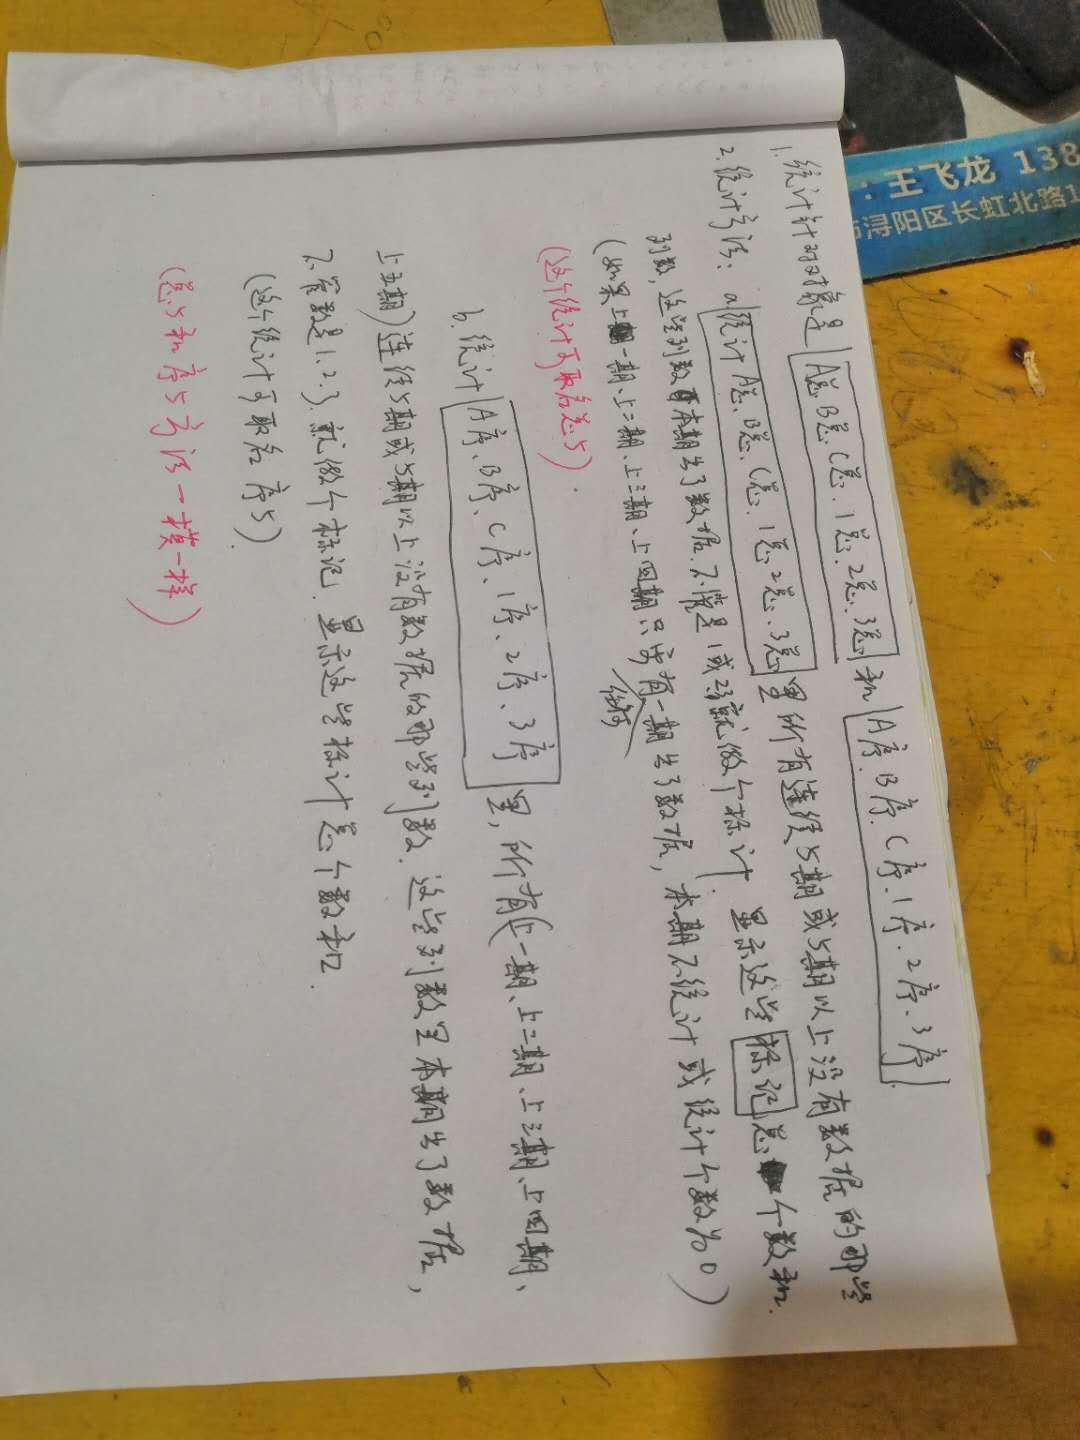 1.统计针对对象是A总.B总.C总.1总.2总.3总和A序.B序.C序.1序.2序.3序.
2.统计方法:a.统计A总.B总.C总.1总.2总.3总里所有连续5期或5期以上没有数据的那些
列数,这些列数本期出了数据不管是1或2.3就做个标计.显示这些标记总个数和.
(如果上一期、上二期、上三期、上四期只要有任何一期出了数据,本期不统计或统计个数为0)
(这个统计可取名总5).
b.统计A序、B序、C序、1序、2序、3序里,所有(上一期、上二期、上三期、上四期、
上五期)连续5期或5期以上没有数据的那些列数.这些列数里本期出了数据,
不管数是1.2.3.就做个标记.显示这些标计总个数和.
(这个统计可取名序5).
(总5和序5方法一模一样)
:王飞龙 138
浔阳区长虹北路1